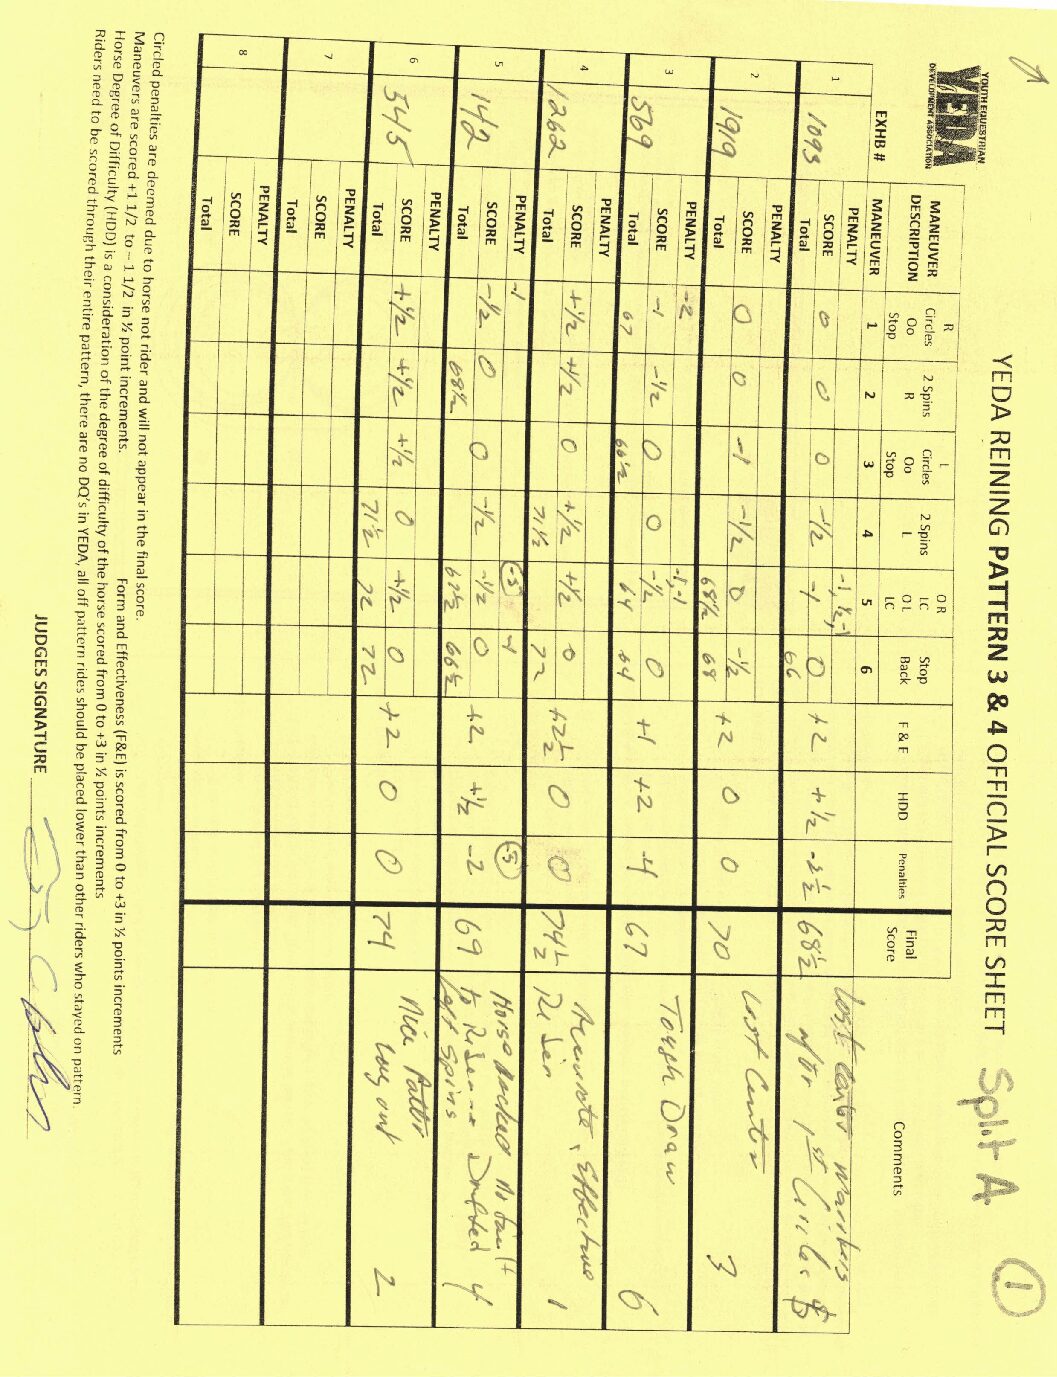 YOUTH EQUESTRIAN
YEDA
DEVELOPMENT ASSOCIATION
YEDA REINING PATTERN 3 & 4 OFFICIAL SCORE SHEET Split A 1
MANEUVER DESCRIPTION R Circles Oo Stop 2 Spins R L Circles Oo Stop 2 Spins L O R LC O L LC Stop Back F & E HDD Penalties Final Score Comments
EXHB # MANEUVER 1 2 3 4 5 6
1 1093 PENALTY -1, ½, -1
SCORE 0 0 0 -1/2 -1 0 +2 +½ -2½ 68½
Total 66
Lost Center Markers
after 1st Circles 5
2 1919 PENALTY
SCORE 0 0 -1 -1/2 0 -1/2 +2 0 0 70
Total 68½ 68
Lost Center 3
3 569 PENALTY -2 -1,-1
SCORE -1 -1/2 0 0 -1/2 0 +1 +2 -4 67
Total 67 66½ 64 64
Tough Draw 6
4 1262 PENALTY
SCORE +1/2 +1/2 0 +1/2 +1/2 0 +2½ 0 0 74½
Total 71½ 72
Accurate, Effective
Rider 1
5 142 PENALTY -1 -5 -1 -5
SCORE -1/2 0 0 -1/2 -1/2 0 +2 +½ -2 69
Total 68½ 67½ 66½
Horse
to Rider Drifted
Left Spins 4
6 3415 PENALTY
SCORE +1/2 +1/2 +1/2 0 +1/2 0 +2 0 0 74
Total 71½ 72 72
Nice Pattern
2
7 PENALTY
SCORE
Total
8 PENALTY
SCORE
Total
Circled penalties are deemed due to horse not rider and will not appear in the final score.
Maneuvers are scored +1 1/2 to – 1 1/2 in ½ point increments. Form and Effectiveness (F&E) is scored from 0 to +3 in ½ points increments
Horse Degree of Difficulty (HDD) is a consideration of the degree of difficulty of the horse scored from 0 to +3 in ½ points increments
Riders need to be scored through their entire pattern, there are no DQ's in YEDA, all off pattern rides should be placed lower than other riders who stayed on pattern.
JUDGES SIGNATURE